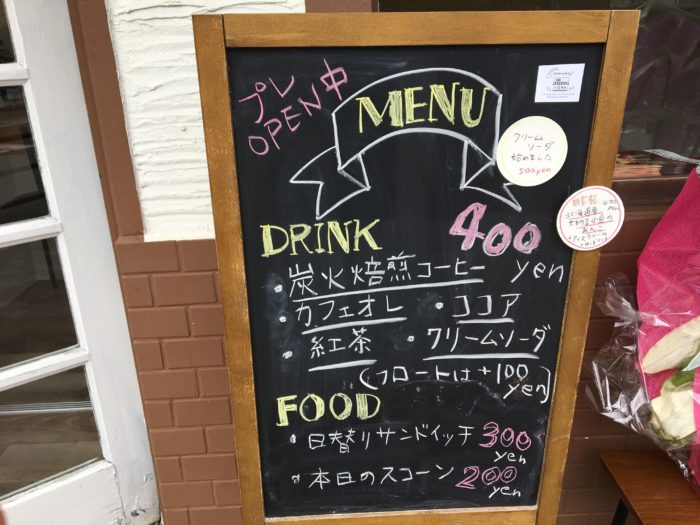 プレ
OPEN中
MENU
クリーム
ソーダ
始めました
500yen
自家製
北海道産
あんこ
・アイスクリーム
DRINK 400
yen
・炭火焙煎コーヒー
・カフェオレ ・ココア
・紅茶 ・クリームソーダ
(フロートは+100
yen)
FOOD
・日替りサンドイッチ 300
yen
・本日のスコーン 200
yen